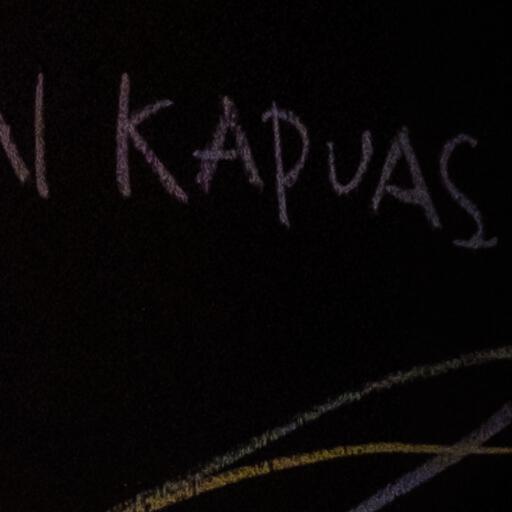 N KAPUAS